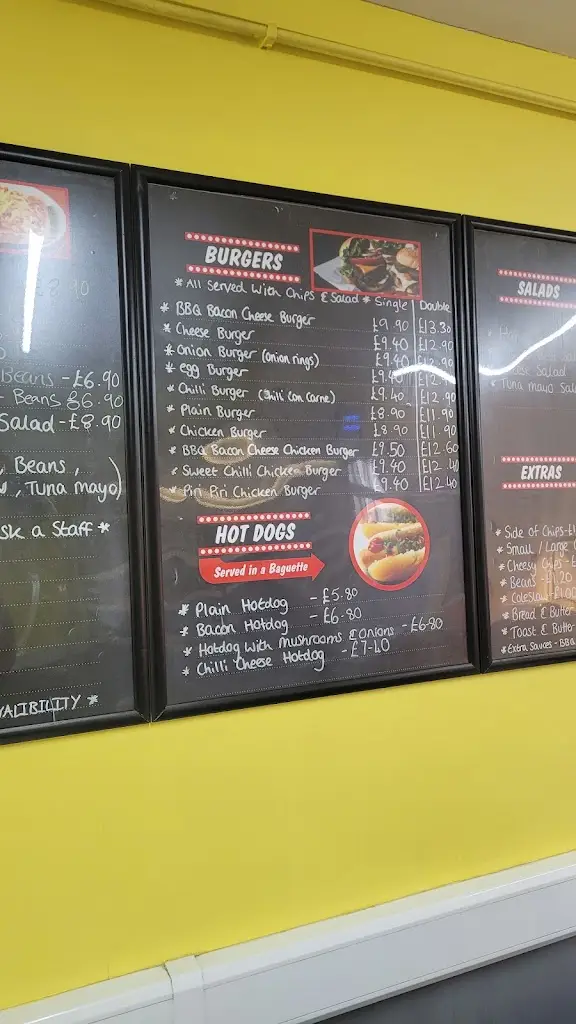 8.90
Beans - £6.90
Beans £6.90
Salad - £8.90
, Beans,
, Tuna mayo)
sk a Staff *
VALIBILITY *
BURGERS
* All Served With Chips & Salad * Single Double
* BBQ Bacon Cheese Burger £9.90 £13.30
* Cheese Burger £9.40 £12.90
* Onion Burger (onion rings) £9.40 £12.90
* Egg Burger £9.40 £12.
* Chilli Burger (Chilli Con Carne) £9.40 £12.90
* Plain Burger £8.90 £11.90
* Chicken Burger £8.90 £11.90
* BBQ Bacon Cheese Chicken Burger £9.50 £12.60
* Sweet Chilli Chicken Burger £9.40 £12.40
* Piri Piri Chicken Burger £9.40 £12.40
HOT DOGS
Served in a Baguette
* Plain Hotdog - £5.80
* Bacon Hotdog - £6.80
* Hotdog With Mushrooms & Onions - £6.80
* Chilli Cheese Hotdog - £7.40
SALADS
Salad
* Tuna mayo Sal
EXTRAS
* Side of Chips - £1
* Small / Large
* Cheesy Chips - £
* Beans - £1.20
* Coleslaw - £1.00
* Bread & Butter
* Toast & Butter
* Extra Sauces - BBQ